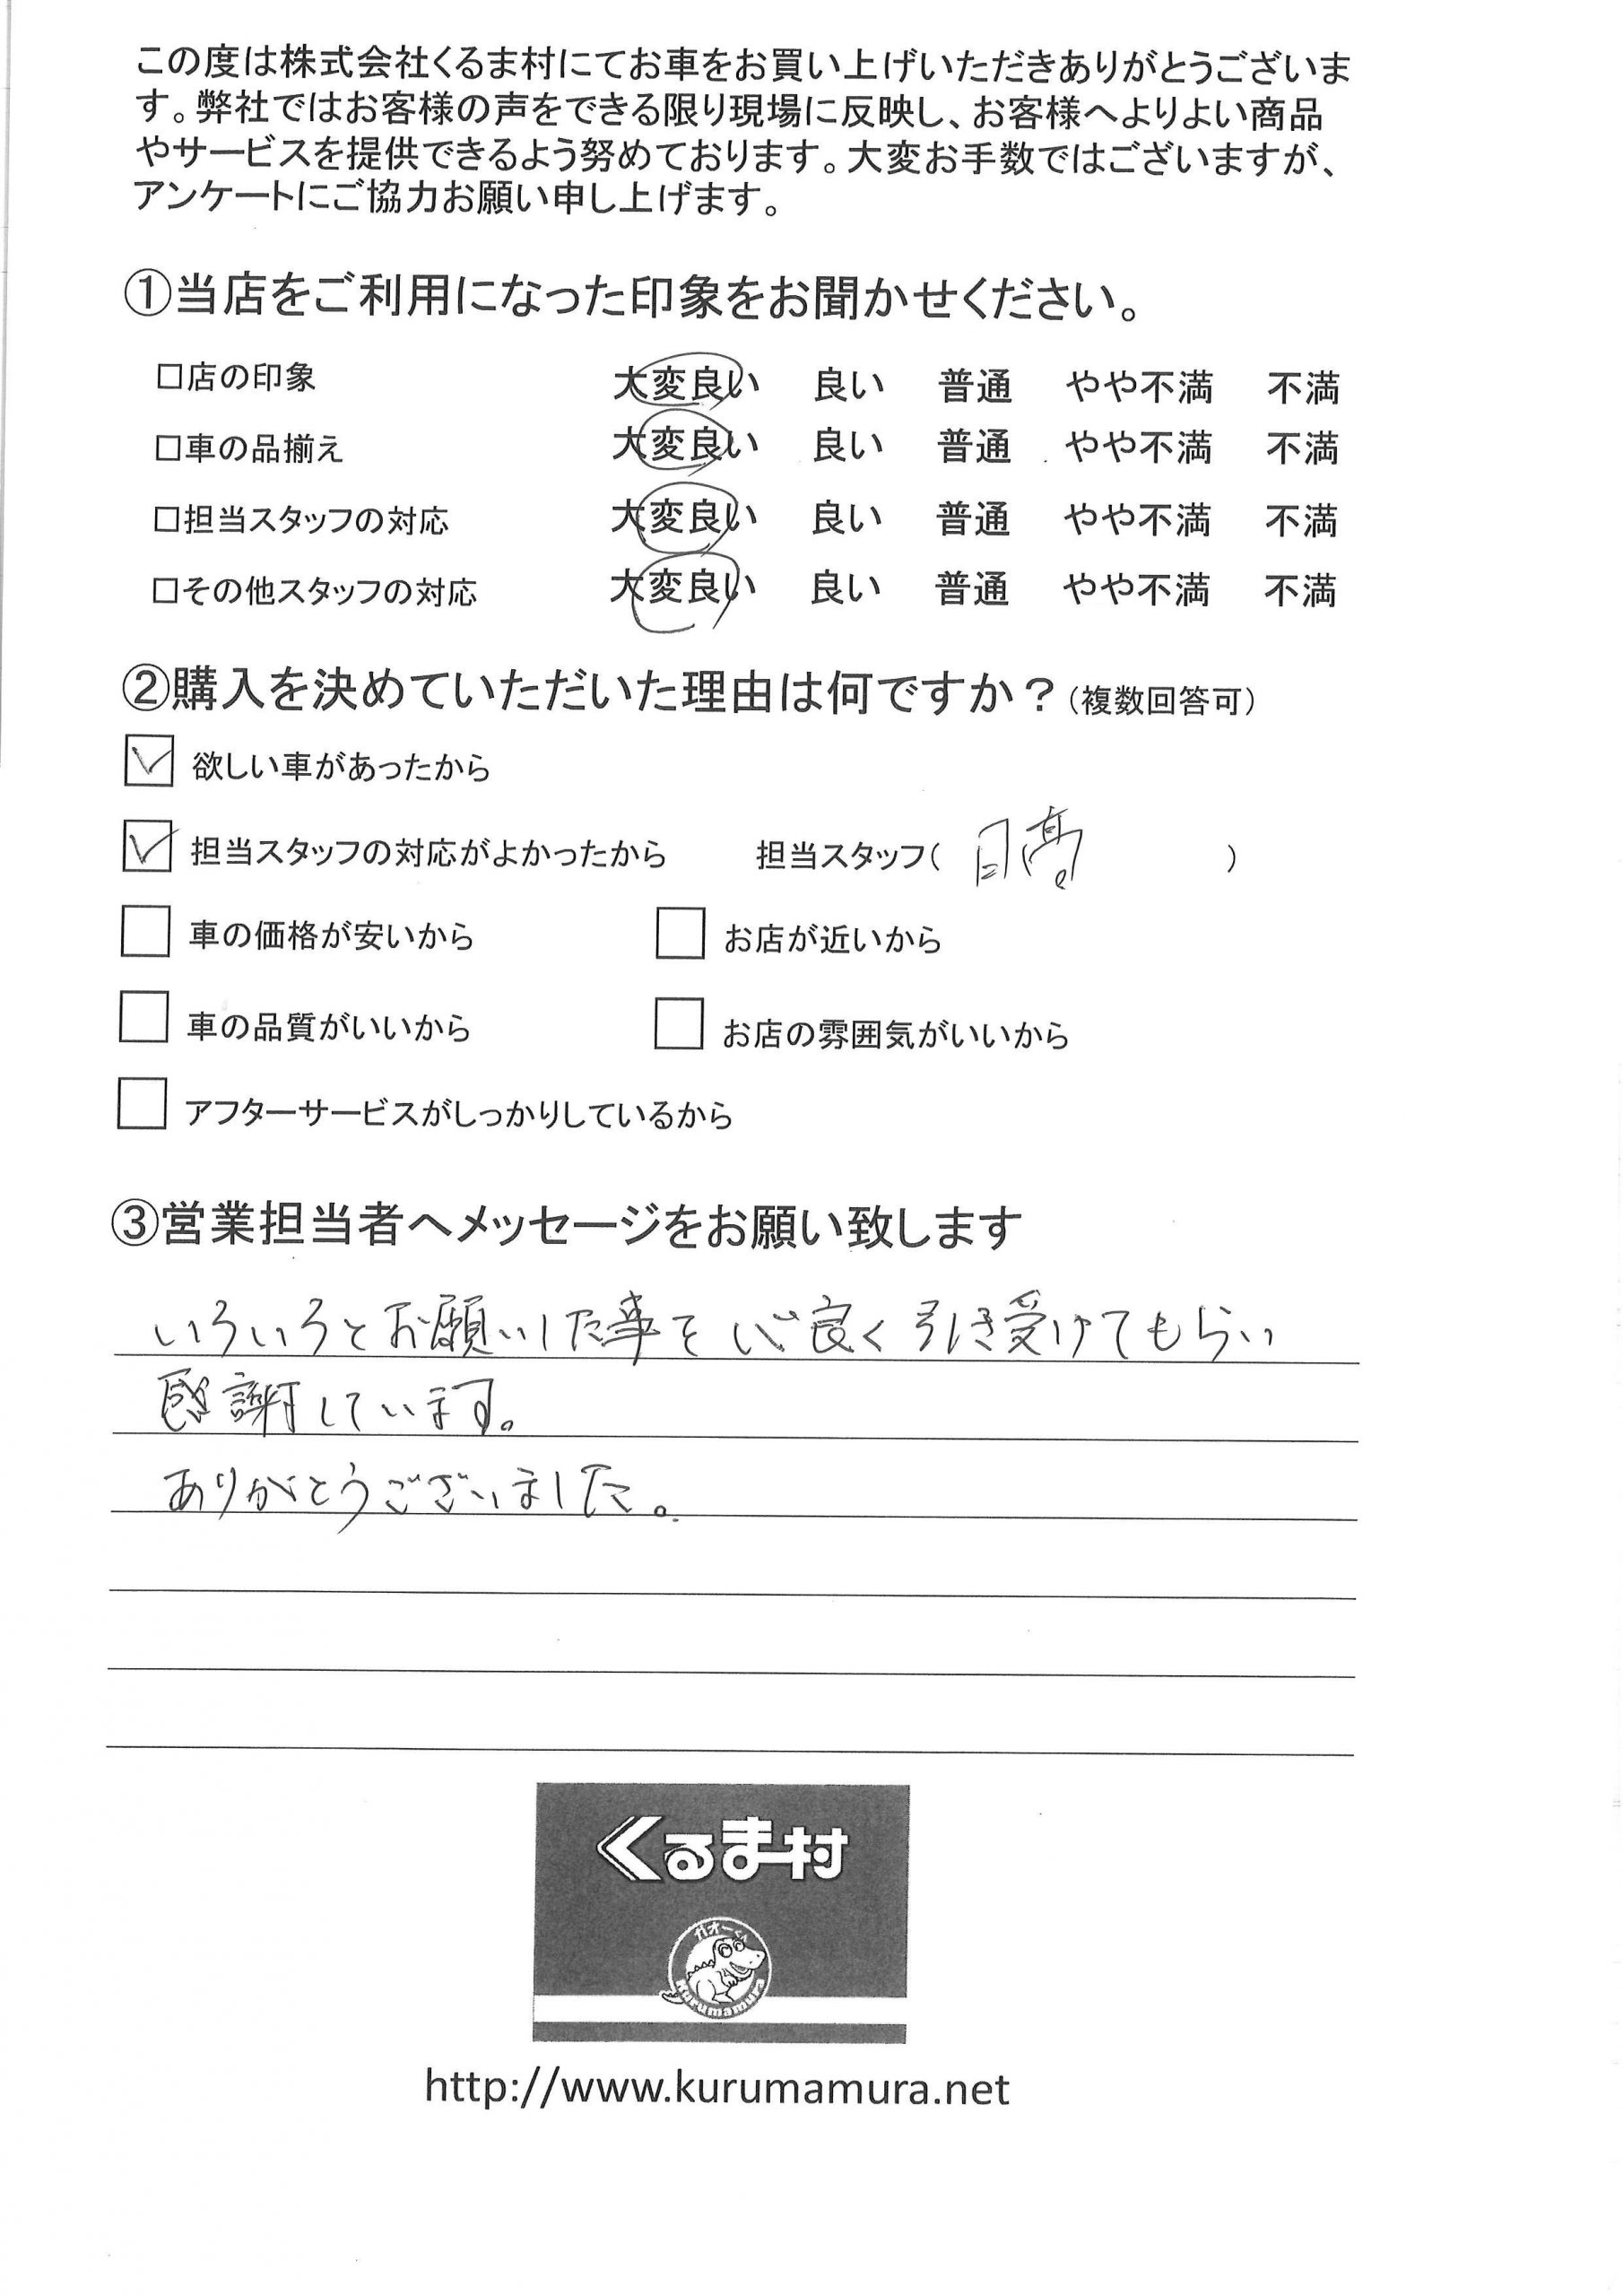 この度は株式会社くるま村にてお車をお買い上げいただきありがとうございま
す。弊社ではお客様の声をできる限り現場に反映し、お客様へよりよい商品
やサービスを提供できるよう努めております。大変お手数ではございますが、
アンケートにご協力お願い申し上げます。
①当店をご利用になった印象をお聞かせください。
□店の印象 大変良い 良い 普通 やや不満 不満
□車の品揃え 大変良い 良い 普通 やや不満 不満
□担当スタッフの対応 大変良い 良い 普通 やや不満 不満
□その他スタッフの対応 大変良い 良い 普通 やや不満 不満
②購入を決めていただいた理由は何ですか？(複数回答可)
欲しい車があったから
担当スタッフの対応がよかったから 担当スタッフ( 日高 )
車の価格が安いから お店が近いから
車の品質がいいから お店の雰囲気がいいから
アフターサービスがしっかりしているから
③営業担当者へメッセージをお願い致します
いろいろとお願いした事を心良く引き受けてもらい
感謝しています。
ありがとうございました。
くるま村
ガオーくん
kurumamura
http://www.kurumamura.net